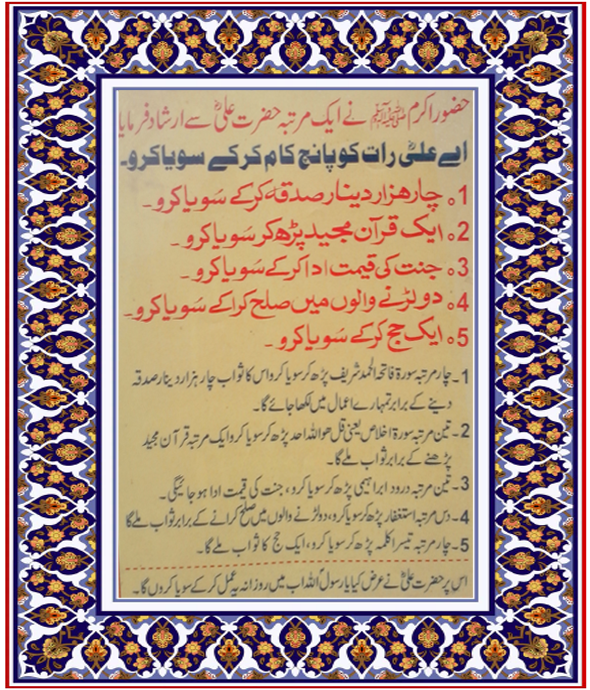 حضور اکرم ﷺ نے ایک مرتبہ حضرت علیؓ سے ارشاد فرمایا
اے علیؓ رات کو پانچ کام کر کے سویا کرو۔
1۔ چار ھزار دینار صدقہ کر کے سویا کرو۔
2۔ ایک قرآن مجید پڑھ کر سویا کرو۔
3۔ جنت کی قیمت ادا کر کے سویا کرو۔
4۔ دو لڑنے والوں میں صلح کرا کے سویا کرو۔
5۔ ایک حج کر کے سویا کرو۔
1۔ چار مرتبہ سورۃ فاتحہ الحمد شریف پڑھ کر سویا کرو اس کا ثواب چار ہزار دینار صدقہ
دینے کے برابر تمہارے اعمال میں لکھا جائے گا۔
2۔ تین مرتبہ سورۃ اخلاص یعنی قل ھو اللہ احد پڑھ کر سویا کرو ایک مرتبہ قرآن مجید
پڑھنے کے برابر ثواب ملے گا۔
3۔ تین مرتبہ درود ابراہیمی پڑھ کر سویا کرو، جنت کی قیمت ادا ہو جائیگی۔
4۔ دس مرتبہ استغفار پڑھ کر سویا کرو، دو لڑنے والوں میں صلح کرانے کے برابر ثواب ملے گا
5۔ چار مرتبہ تیسرا کلمہ پڑھ کر سویا کرو، ایک حج کا ثواب ملے گا۔
اس پر حضرت علیؓ نے عرض کیا یا رسول اللہ اب میں روزانہ یہ عمل کر کے سویا کروں گا۔